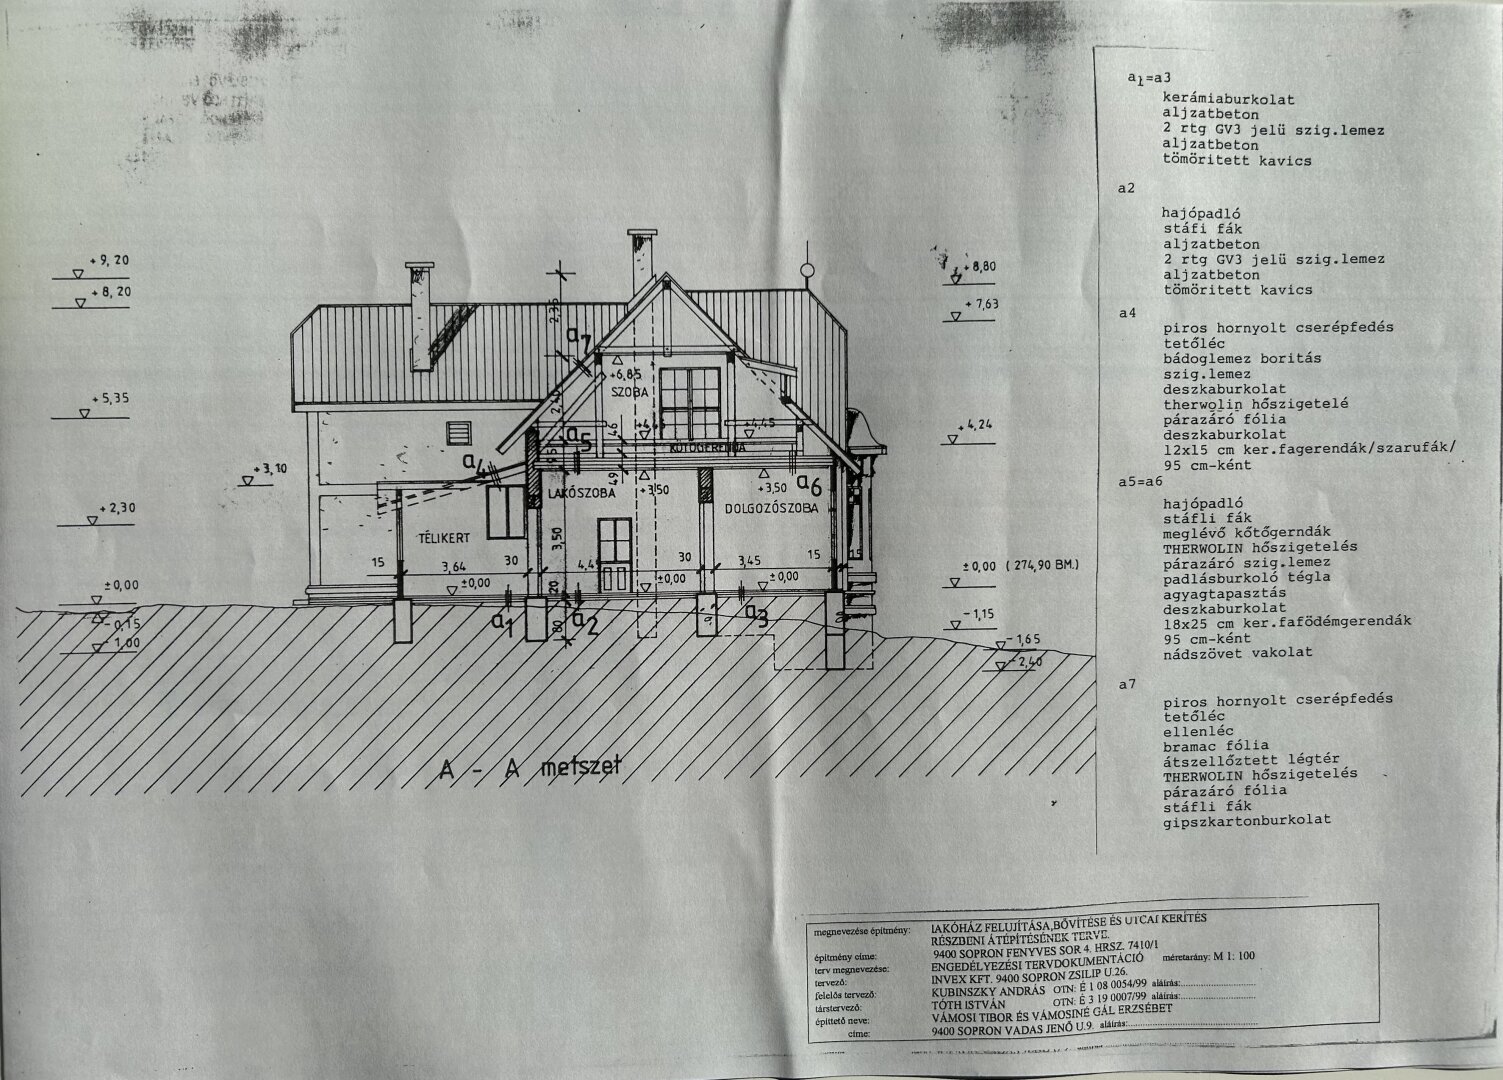 + 9, 20
+ 8, 20
+ 5,35
+ 3,10
+ 2,30
± 0,00
- 0,15
- 1,00
+ 8,80
+ 7,63
+ 4,24
± 0,00 ( 274,90 BM.)
- 1,15
- 1,65
- 2,40
2,35
a7
+6,85
SZOBA
2,40
46
+4,45
a5
KÖTŐGERENDA
a4
95
49
LAKÓSZOBA
+3,50
+3,50
a6
DOLGOZÓSZOBA
TÉLIKERT
3,50
15
3,64
30
30
3,45
15
15
±0,00
±0,00
±0,00
20
a1
a2
a3
80
A - A metszet
a1=a3
kerámiaburkolat
aljzatbeton
2 rtg GV3 jelü szig.lemez
aljzatbeton
tömöritett kavics
a2
hajópadló
stáfi fák
aljzatbeton
2 rtg GV3 jelü szig.lemez
aljzatbeton
tömöritett kavics
a4
piros hornyolt cserépfedés
tetőléc
bádoglemez boritás
szig.lemez
deszkaburkolat
therwolin hőszigetelé
párazáró fólia
deszkaburkolat
12x15 cm ker.fagerendák/szarufák/
95 cm-ként
a5=a6
hajópadló
stáfli fák
meglévő kőtőgerndák
THERWOLIN hőszigetelés
párazáró szig.lemez
padlásburkoló tégla
agyagtapasztás
deszkaburkolat
18x25 cm ker.fafödémgerendák
95 cm-ként
nádszövet vakolat
a7
piros hornyolt cserépfedés
tetőléc
ellenléc
bramac fólia
átszellőztett légtér
THERWOLIN hőszigetelés
párazáró fólia
stáfli fák
gipszkartonburkolat
megnevezése építmény: LAKÓHÁZ FELUJÍTÁSA,BŐVÍTÉSE ÉS UTCAI KERÍTÉS
RÉSZBENI ÁTÉPÍTÉSÉNEK TERVE.
építmény címe: 9400 SOPRON FENYVES SOR 4. HRSZ. 7410/1
terv megnevezése: ENGEDÉLYEZÉSI TERVDOKUMENTÁCIÓ méretarány: M 1: 100
tervező: INVEX KFT. 9400 SOPRON ZSILIP U.26.
felelős tervező: KUBINSZKY ANDRÁS OTN: É 1 08 0054/99 aláírás:
társtervező: TÓTH ISTVÁN OTN: É 3 19 0007/99 aláírás:
építtető neve: VÁMOSI TIBOR ÉS VÁMOSINÉ GÁL ERZSÉBET
címe: 9400 SOPRON VADAS JENŐ U.9. aláírás: